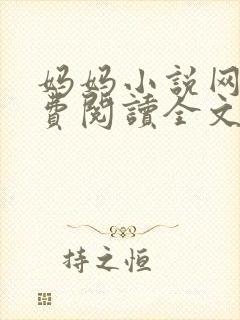 妈妈小说网
費閱讀全文
持之恒